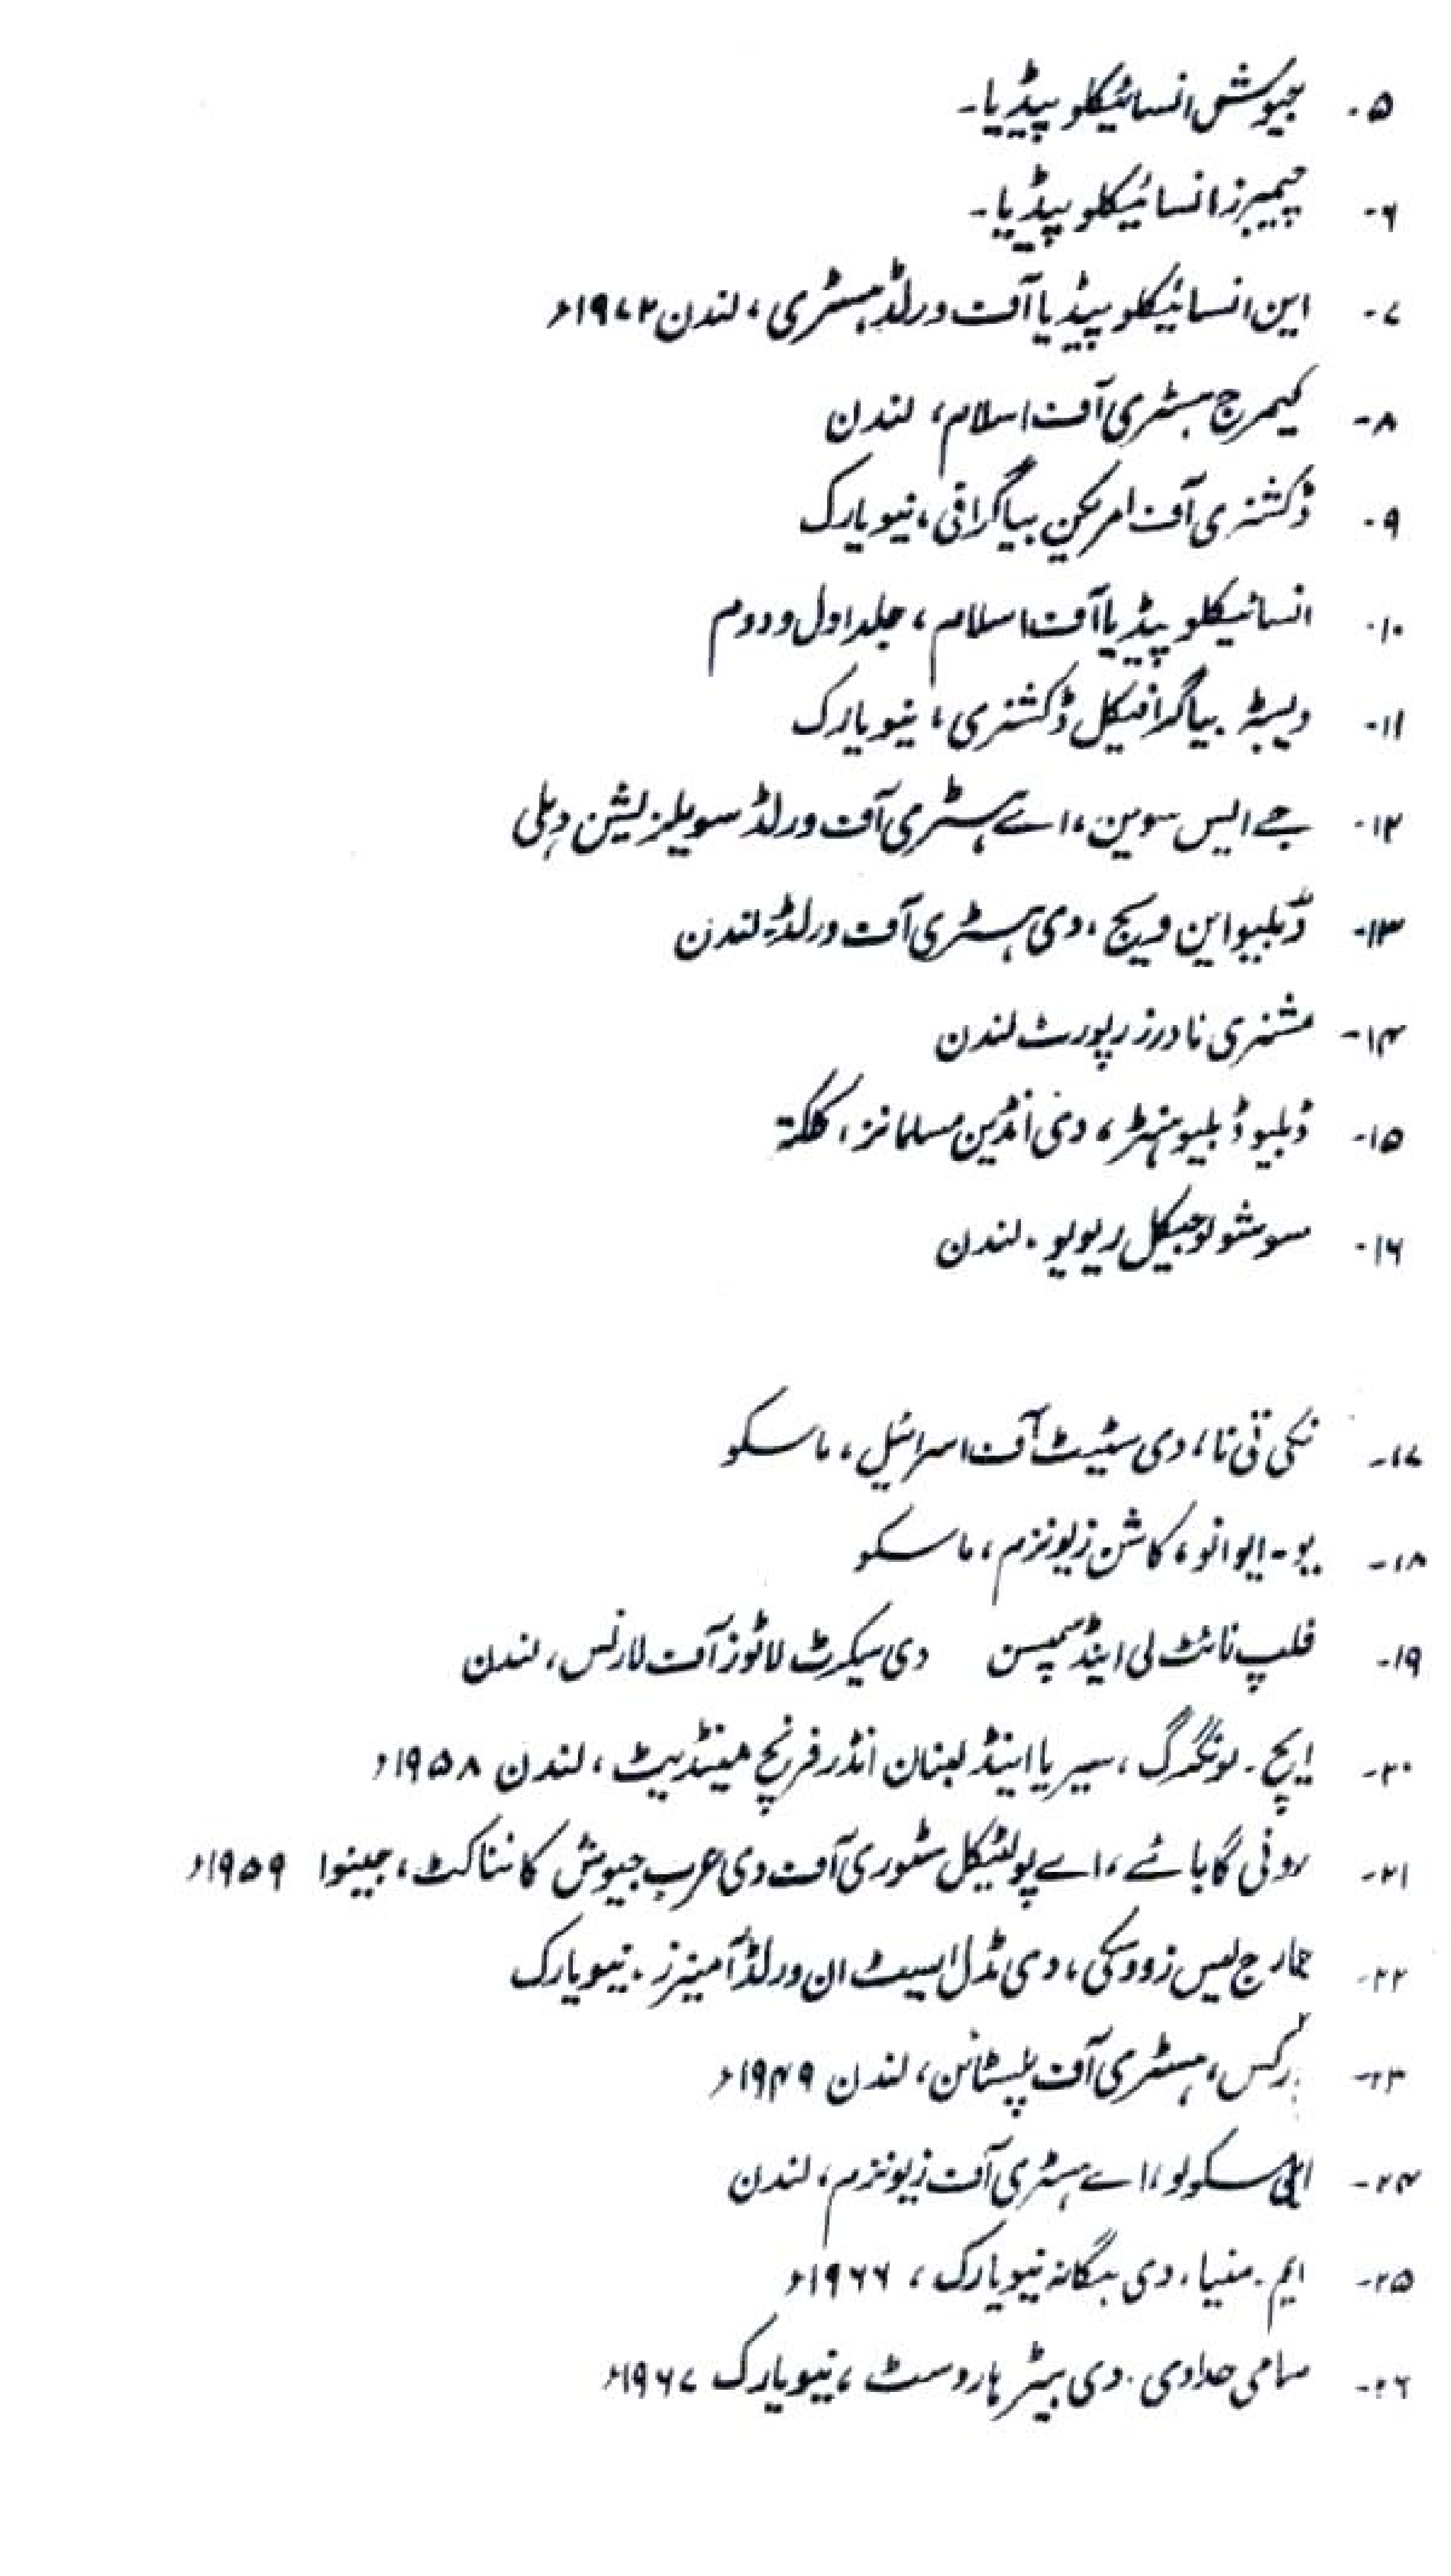 ۵- جیوش انسائیکلو پیڈیا۔
۶- چیمبرز انسائیکلو پیڈیا۔
۷- این انسائیکلو پیڈیا آف ورلڈ ہسٹری، لندن ۱۹۷۲ء
۸- کیمرج ہسٹری آف اسلام، لندن
۹- ڈکشنری آف امریکن بیاگرافی، نیویارک
۱۰- انسائیکلو پیڈیا آف اسلام، جلد اول و دوم
۱۱- ویبسٹر بیاگرافیکل ڈکشنری، نیویارک
۱۲- جے ایس سوین، اے ہسٹری آف ورلڈ سویلزیشن دہلی
۱۳- ڈبلیو این ویچ، دی ہسٹری آف ورلڈ۔ لندن
۱۴- مشنری فادرز رپورٹ لندن
۱۵- ڈبلیو ڈبلیو ہنٹر، دی انڈین مسلمانز، کلکتہ
۱۶- سوشولوجیکل ریویو۔ لندن
۱۷- نکی تی نا، دی سٹیٹ آف اسرائیل، ماسکو
۱۸- یو۔ ایوانو، کاشن زیونزم، ماسکو
۱۹- فلپ نائٹ لی اینڈ سمپسن دی سیکرٹ لائوز آف لارنس، لندن
۲۰- ایچ۔ لونگرگ، سیریا اینڈ لبنان انڈر فرنچ مینڈیٹ، لندن ۱۹۵۸ء
۲۱- رونی گابائے، اے پولٹیکل سٹوری آف دی عرب جیوش کانناکٹ، جینوا ۱۹۵۹ء
۲۲- جارج لیس زووسکی، دی مڈل ایسٹ ان ورلڈ آفیئرز۔ نیویارک
۲۳- رکس، ہسٹری آف پلسٹائن، لندن ۱۹۴۹ء
۲۴- سکولو، اے ہسٹری آف زیونزم، لندن
۲۵- ایم۔ منیا، دی ہگانہ نیویارک، ۱۹۶۶ء
۲۶- سامی حداوی۔ دی بیٹر ہاروسٹ، نیویارک ۱۹۶۷ء